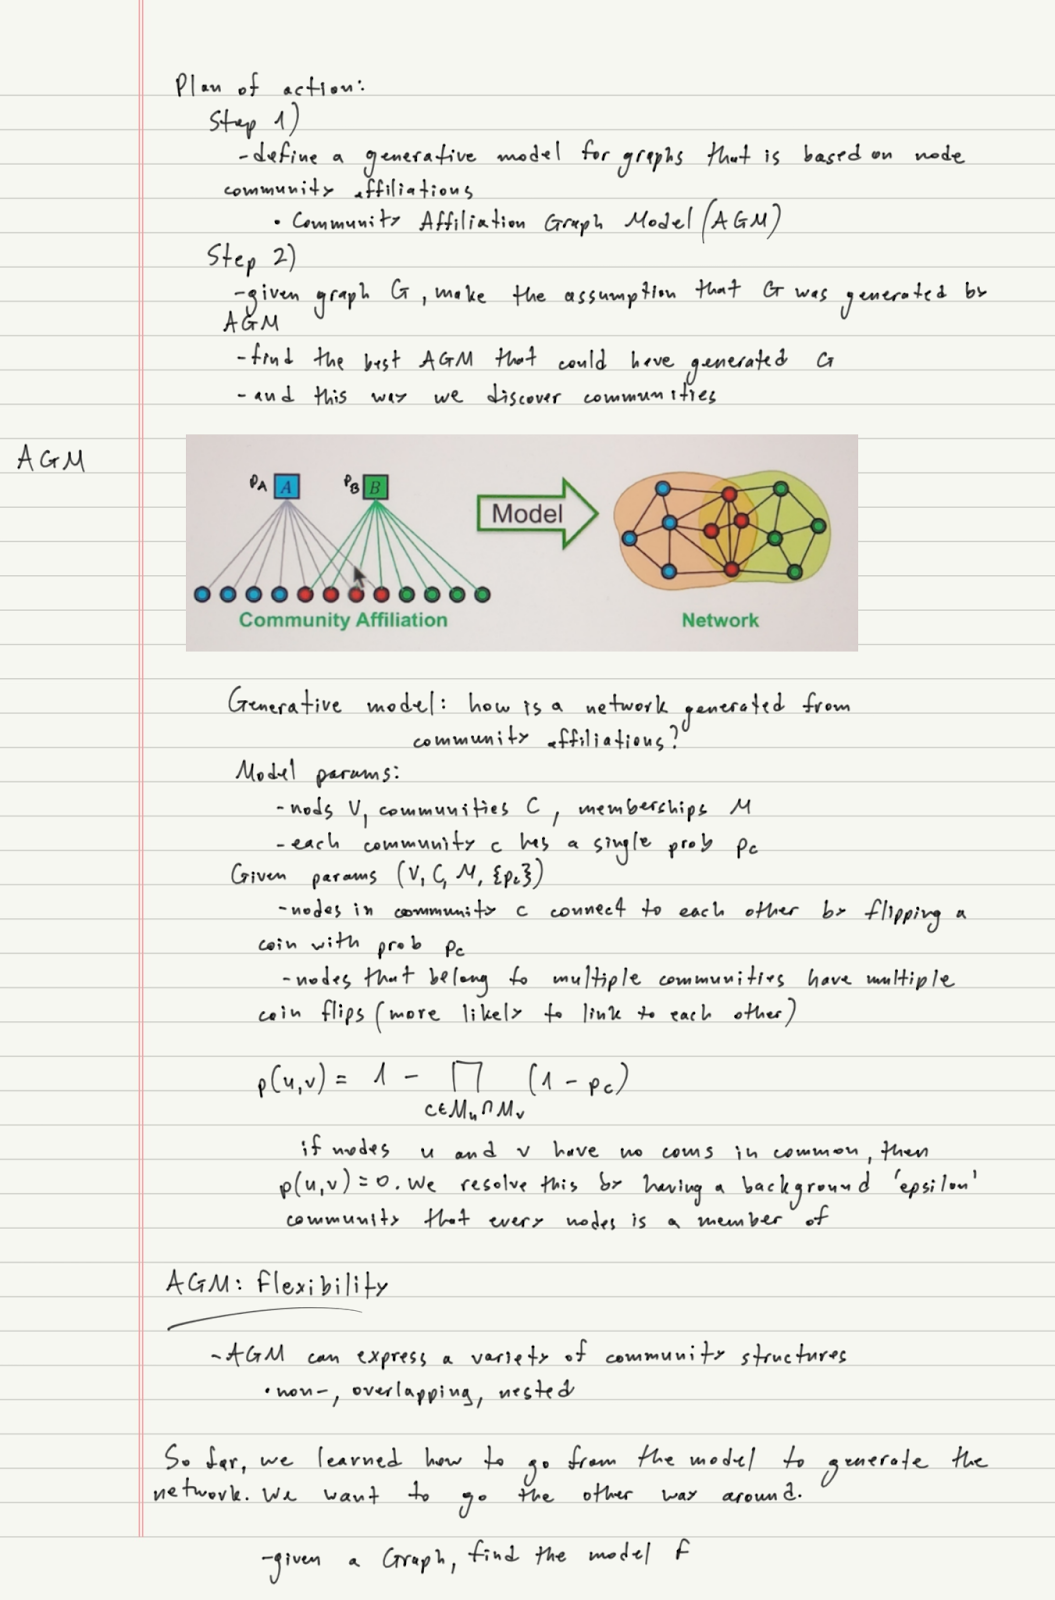 Plan of action:
Step 1)
- define a generative model for graphs that is based on node
community affiliations
• Community Affiliation Graph Model (AGM)
Step 2)
- given graph G, make the assumption that G was generated by
AGM
- find the best AGM that could have generated G
- and this way we discover communities
AGM
PA A PB B
Model
Community Affiliation
Network
Generative model: how is a network generated from
community affiliations?
Model params:
- nods V, communities C, memberships M
- each community c has a single prob pc
Given params (V, C, M, {pc})
- nodes in community c connect to each other by flipping a
coin with prob pc
- nodes that belong to multiple communities have multiple
coin flips (more likely to link to each other)
p(u,v) = 1 - ∏ (1 - pc)
c∈Mu∩Mv
if nodes u and v have no coms in common, then
p(u,v)=0. We resolve this by having a background 'epsilon'
community that every nodes is a member of
AGM: Flexibility
- AGM can express a variety of community structures
• non-, overlapping, nested
So far, we learned how to go from the model to generate the
network. We want to go the other way around.
- given a Graph, find the model F